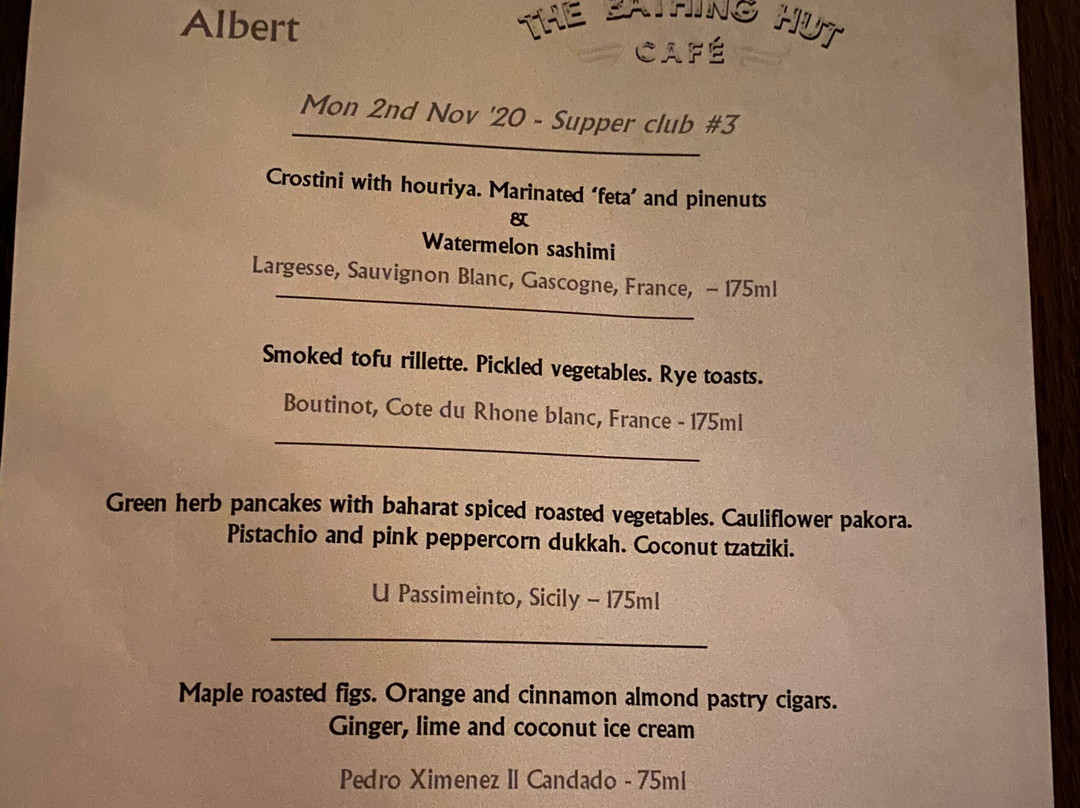 Albert
THE BATHING HUT
CAFÉ
Mon 2nd Nov '20 - Supper club #3
Crostini with houriya. Marinated ‘feta’ and pinenuts
&
Watermelon sashimi
Largesse, Sauvignon Blanc, Gascogne, France, – 175ml
Smoked tofu rillette. Pickled vegetables. Rye toasts.
Boutinot, Cote du Rhone blanc, France - 175ml
Green herb pancakes with baharat spiced roasted vegetables. Cauliflower pakora.
Pistachio and pink peppercorn dukkah. Coconut tzatziki.
U Passimeinto, Sicily – 175ml
Maple roasted figs. Orange and cinnamon almond pastry cigars.
Ginger, lime and coconut ice cream
Pedro Ximenez II Candado - 75ml